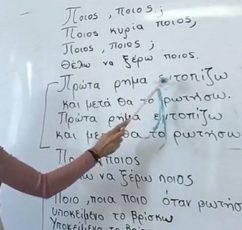 Ποιος, ποιος;
Ποιος κυρία ποιος,
Ποιος, ποιος;
Θέλω να ξέρω ποιος.
Πρώτα ρημα εντοπίζω
και μετά θα το ρωτήσω.
Πρώτα ρημα εντοπίζω
και μετά θα το ρωτήσω
ποιος
να ξέρω ποιος
Ποιο, ποια ποιο όταν ρωτήσ
υποκείμενο το βρίσκω
Υποκείμενο το βρίσκω